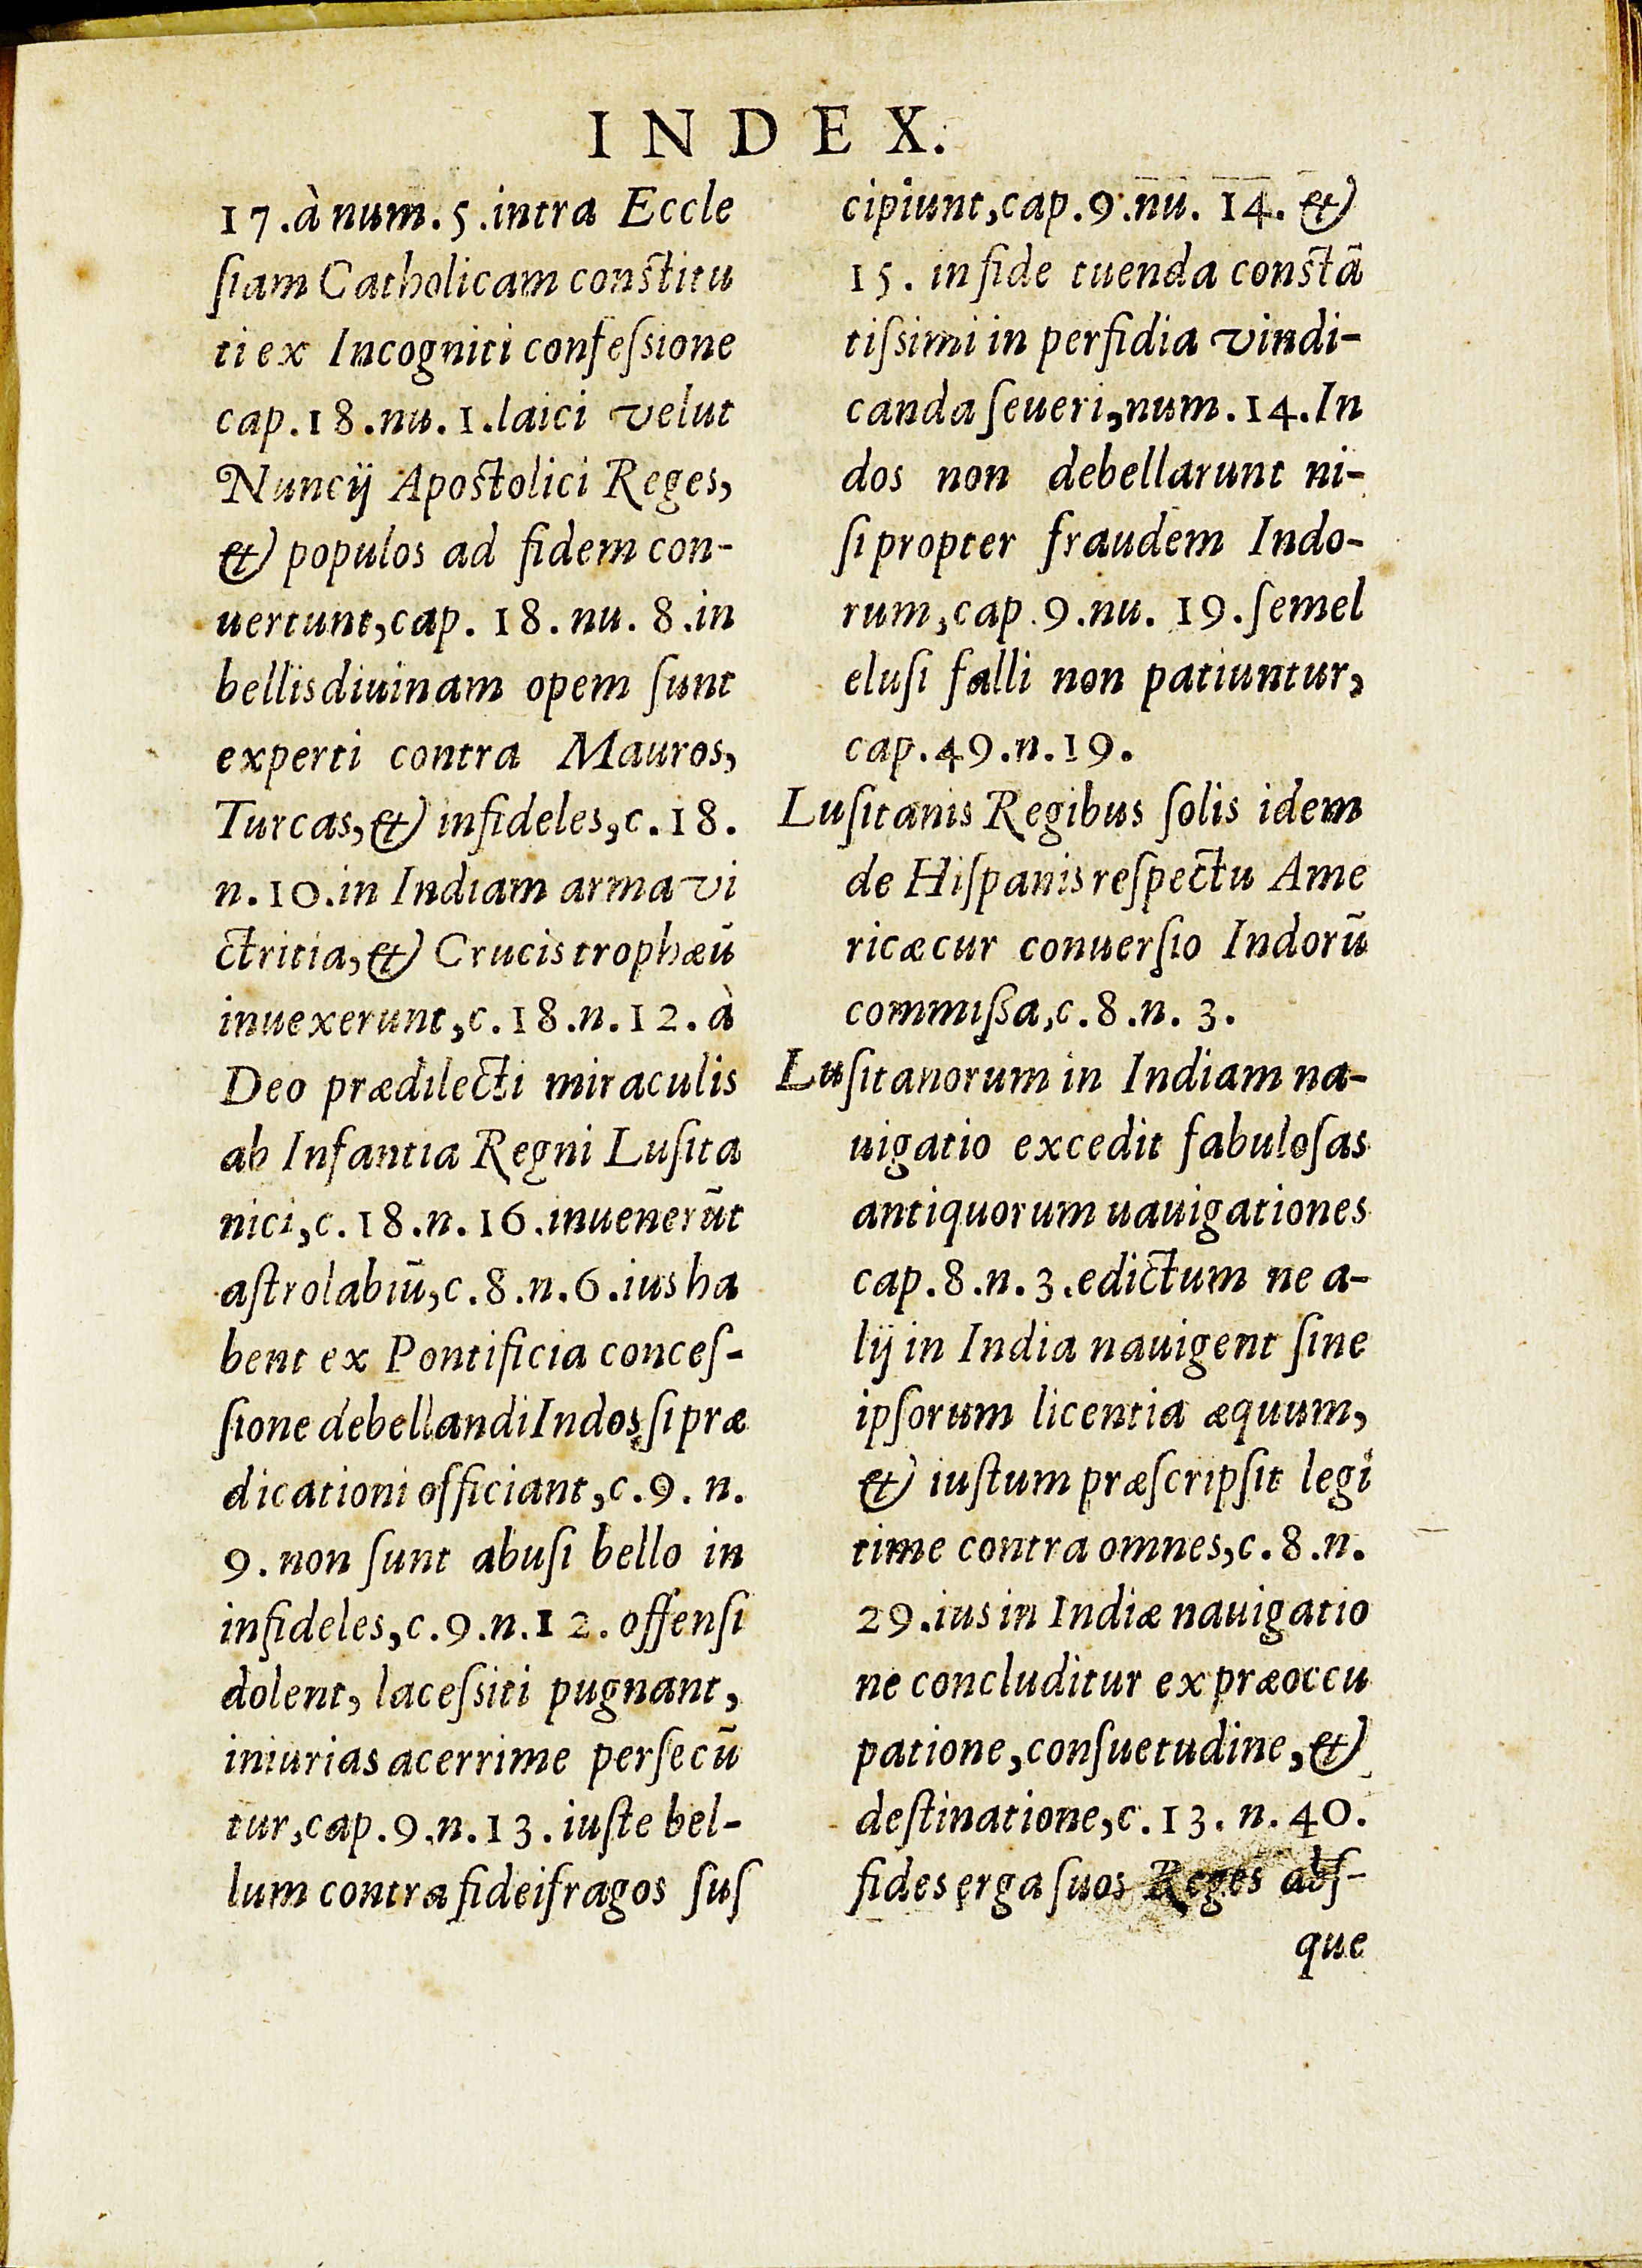 INDEX.
17.à num.5.intra Eccle
ſiam Catholicam conſtitu
ti ex Incogniti confeſsione
cap.18.nu.1.laici velut
Nuncij Apoſtolici Reges,
& populos ad fidem con-
uertunt,cap. 18. nu. 8.in
bellis diuinam opem ſunt
experti contra Mauros,
Turcas,& infideles,c.18.
n.10.in Indiam arma vi
ctritia,& Crucis trophæū
inuexerunt,c.18.n.12. à
Deo prædilecti miraculis
ab Infantia Regni Luſita
nici,c.18.n.16.inuenerūt
aſtrolabiū,c.8.n.6.ius ha
bent ex Pontificia conceſ-
ſione debellandi Indos,ſi præ
dicationi officiant,c.9. n.
9. non ſunt abuſi bello in
infideles,c.9.n.12. offenſi
dolent, laceſsiti pugnant,
iniurias acerrime perſecū
tur,cap.9.n.13. iuſte bel-
lum contra fideifragos ſuſ
cipiunt,cap.9.nu. 14. &
15. in fide tuenda conſtā
tiſsimi in perfidia vindi-
canda ſeueri,num.14.In
dos non debellarunt ni-
ſi propter fraudem Indo-
rum,cap.9.nu. 19.ſemel
eluſi falli non patiuntur,
cap.49.n.19.
Luſitanis Regibus ſolis idem
de Hiſpanis reſpectu Ame
ricæ cur conuerſio Indorū
commiſſa,c.8.n. 3.
Luſitanorum in Indiam na-
uigatio excedit fabuloſas
antiquorum uauigationes
cap.8.n.3.edictum ne a-
lij in India nauigent ſine
ipſorum licentia æquum,
& iuſtum præſcripſit legi
time contra omnes,c.8.n.
29.ius in Indiæ nauigatio
ne concluditur ex præoccu
patione,conſuetudine,&
deſtinatione,c.13. n.40.
fides erga ſuos Reges abſ-
que